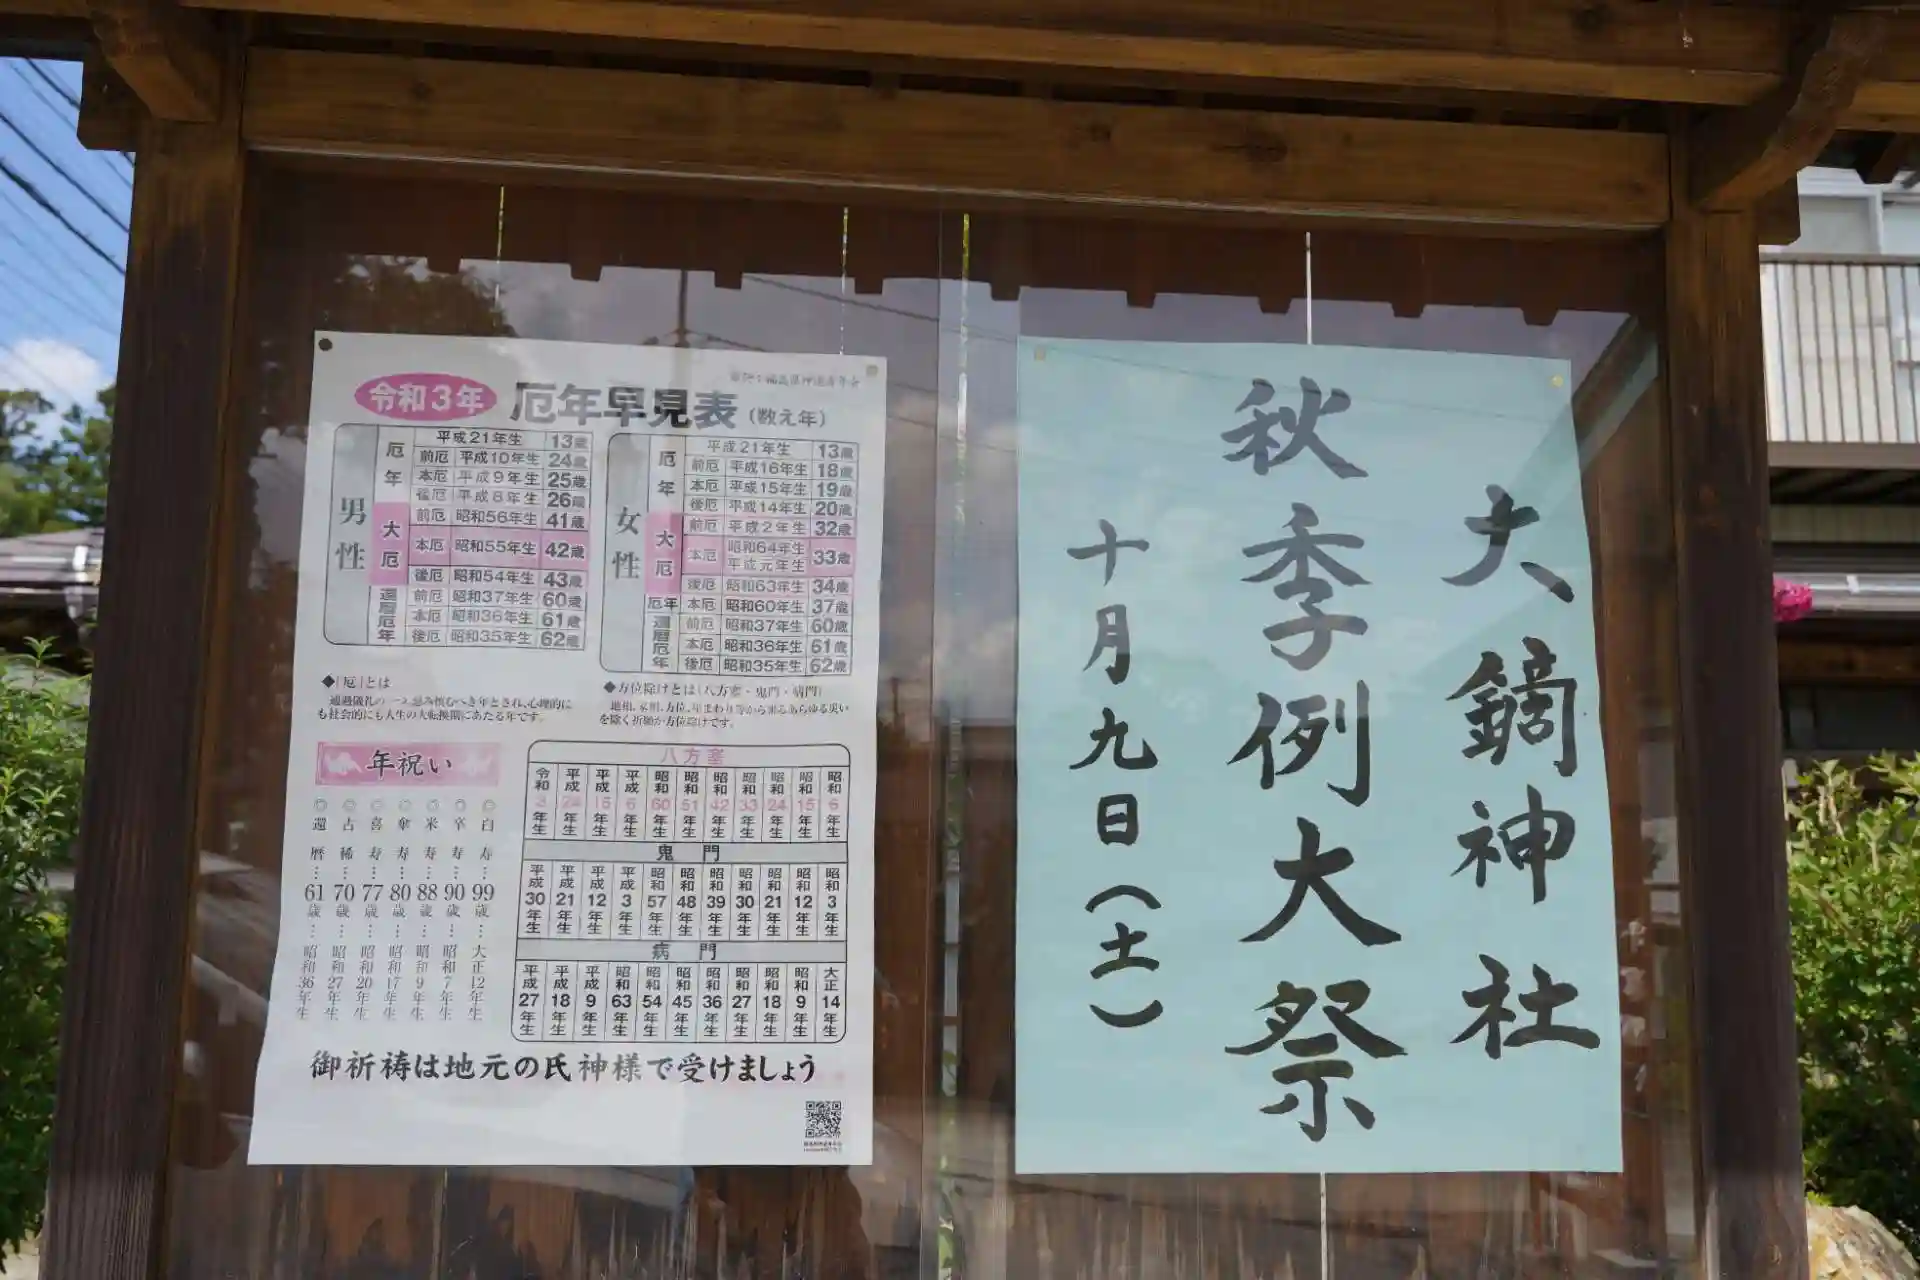 大鏑神社
秋季例大祭
十月九日(土)
令和3年 厄年早見表(数え年)
男性
厄年
平成21年生 13歳
前厄 平成10年生 24歳
本厄 平成9年生 25歳
後厄 平成8年生 26歳
大厄
前厄 昭和56年生 41歳
本厄 昭和55年生 42歳
後厄 昭和54年生 43歳
還暦厄年
前厄 昭和37年生 60歳
本厄 昭和36年生 61歳
後厄 昭和35年生 62歳
女性
厄年
平成21年生 13歳
前厄 平成16年生 18歳
本厄 平成15年生 19歳
後厄 平成14年生 20歳
大厄
前厄 平成2年生 32歳
本厄 昭和64年生 平成元年生 33歳
後厄 昭和63年生 34歳
厄年 本厄 昭和60年生 37歳
還暦厄年
前厄 昭和37年生 60歳
本厄 昭和36年生 61歳
後厄 昭和35年生 62歳
◆「厄」とは
も社会的にも人生の大転換期にあたる年です。
◆方位除けとは(八方塞・鬼門・病門)
地相、家相、方位、年まわり等から来るあらゆる災い
を除く祈願が方位除けです。
年祝い
◎還暦…61歳…昭和36年生
◎古稀…70歳…昭和27年生
◎喜寿…77歳…昭和20年生
◎傘寿…80歳…昭和17年生
◎米寿…88歳…昭和9年生
◎卒寿…90歳…昭和7年生
◎白寿…99歳…大正12年生
八方塞
令和3年生 平成24年生 平成15年生 平成6年生 昭和60年生 昭和51年生 昭和42年生 昭和33年生 昭和24年生 昭和15年生 昭和6年生
鬼門
平成30年生 平成21年生 平成12年生 平成3年生 昭和57年生 昭和48年生 昭和39年生 昭和30年生 昭和21年生 昭和12年生 昭和3年生
病門
平成27年生 平成18年生 平成9年生 昭和63年生 昭和54年生 昭和45年生 昭和36年生 昭和27年生 昭和18年生 昭和9年生 大正14年生
御祈祷は地元の氏神様で受けましょう